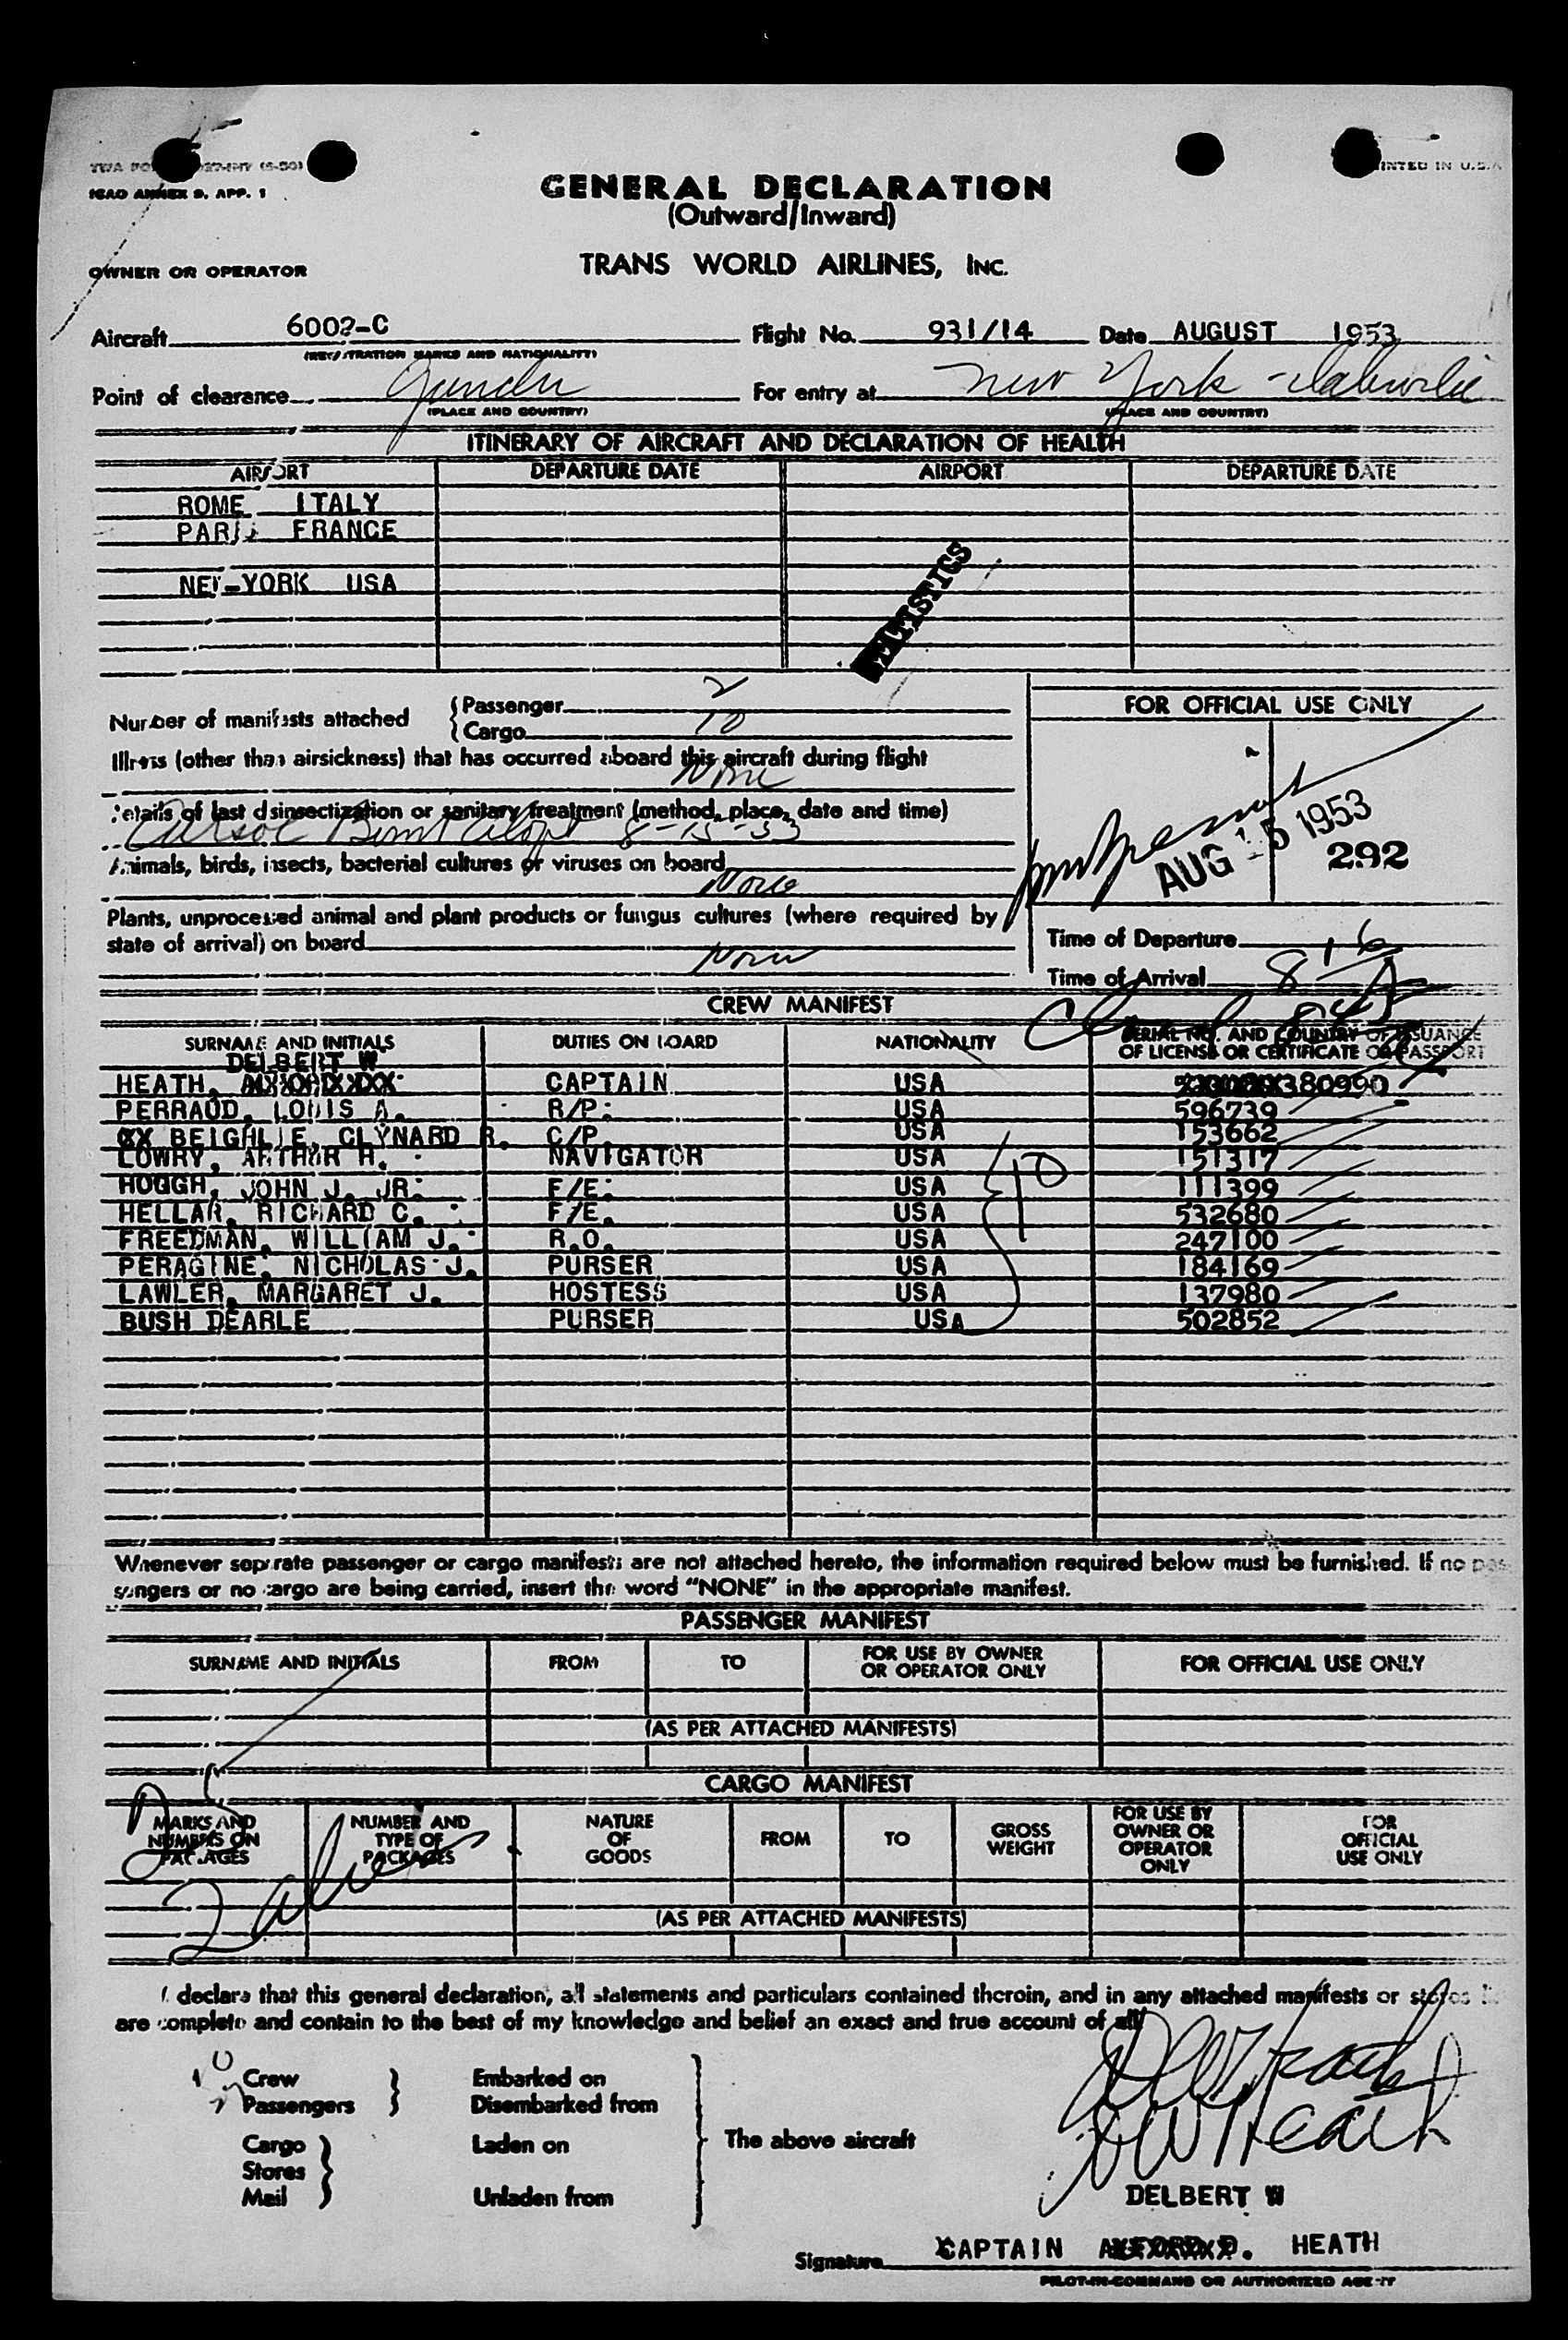 ICAO ANNEX 9, APP. 1
PRINTED IN U.S.A
GENERAL DECLARATION
(Outward/Inward)
OWNER OR OPERATOR
TRANS WORLD AIRLINES, INC.
Aircraft 6002-C Flight No. 931/14 Date AUGUST 1953
(REGISTRATION MARKS AND NATIONALITY)
Point of clearance Gander For entry at New York - Idlewild
(PLACE AND COUNTRY) (PLACE AND COUNTRY)
ITINERARY OF AIRCRAFT AND DECLARATION OF HEALTH
AIRPORT DEPARTURE DATE AIRPORT DEPARTURE DATE
ROME ITALY
PARIS FRANCE
NEW-YORK USA
STATISTICS
Number of manifests attached {Passenger 2
{Cargo 10
FOR OFFICIAL USE ONLY
Illness (other than airsickness) that has occurred aboard this aircraft during flight
None
Details of last disinsectization or sanitary treatment (method, place, date and time)
8-15-53
AUG 15 1953
292
Animals, birds, insects, bacterial cultures or viruses on board
None
Plants, unprocessed animal and plant products or fungus cultures (where required by
state of arrival) on board
None
Time of Departure
Time of Arrival 8 16
CREW MANIFEST
SURNAME AND INITIALS DUTIES ON BOARD NATIONALITY SERIAL NO. AND COUNTRY OF ISSUANCE
OF LICENSE OR CERTIFICATE OR PASSPORT
DELBERT W
HEATH, CAPTAIN USA 380990
PERRAUD, LOUIS A. R/P. USA 596739
XX BEIGHLIE, CLYNARD R. C/P. USA 153662
LOWRY, ARTHUR H. NAVIGATOR USA 151317
HOUGH, JOHN J. JR. F/E. USA 111399
HELLAR, RICHARD C. F/E. USA 532680
FREEDMAN, WILLIAM J. R.O. USA 247100
PERAGINE, NICHOLAS J. PURSER USA 184169
LAWLER, MARGARET J. HOSTESS USA 137980
BUSH DEARLE PURSER USA 502852
10
Whenever separate passenger or cargo manifests are not attached hereto, the information required below must be furnished. If no pas-
sengers or no cargo are being carried, insert the word "NONE" in the appropriate manifest.
PASSENGER MANIFEST
SURNAME AND INITIALS FROM TO FOR USE BY OWNER
OR OPERATOR ONLY FOR OFFICIAL USE ONLY
(AS PER ATTACHED MANIFESTS)
CARGO MANIFEST
MARKS AND
NUMBERS ON
PACKAGES
NUMBER AND
TYPE OF
PACKAGES
NATURE
OF
GOODS
FROM
TO
GROSS
WEIGHT
FOR USE BY
OWNER OR
OPERATOR
ONLY
FOR
OFFICIAL
USE ONLY
(AS PER ATTACHED MANIFESTS)
I declare that this general declaration, all statements and particulars contained therein, and in any attached manifests or stores
are complete and contain to the best of my knowledge and belief an exact and true account of all
10 Crew } Embarked on
Passengers Disembarked from
Cargo } Laden on
The above aircraft
Stores
Mail Unladen from
DW Heath
DW Heath
DELBERT W
Signature CAPTAIN HEATH
PILOT-IN-COMMAND OR AUTHORIZED AGENT